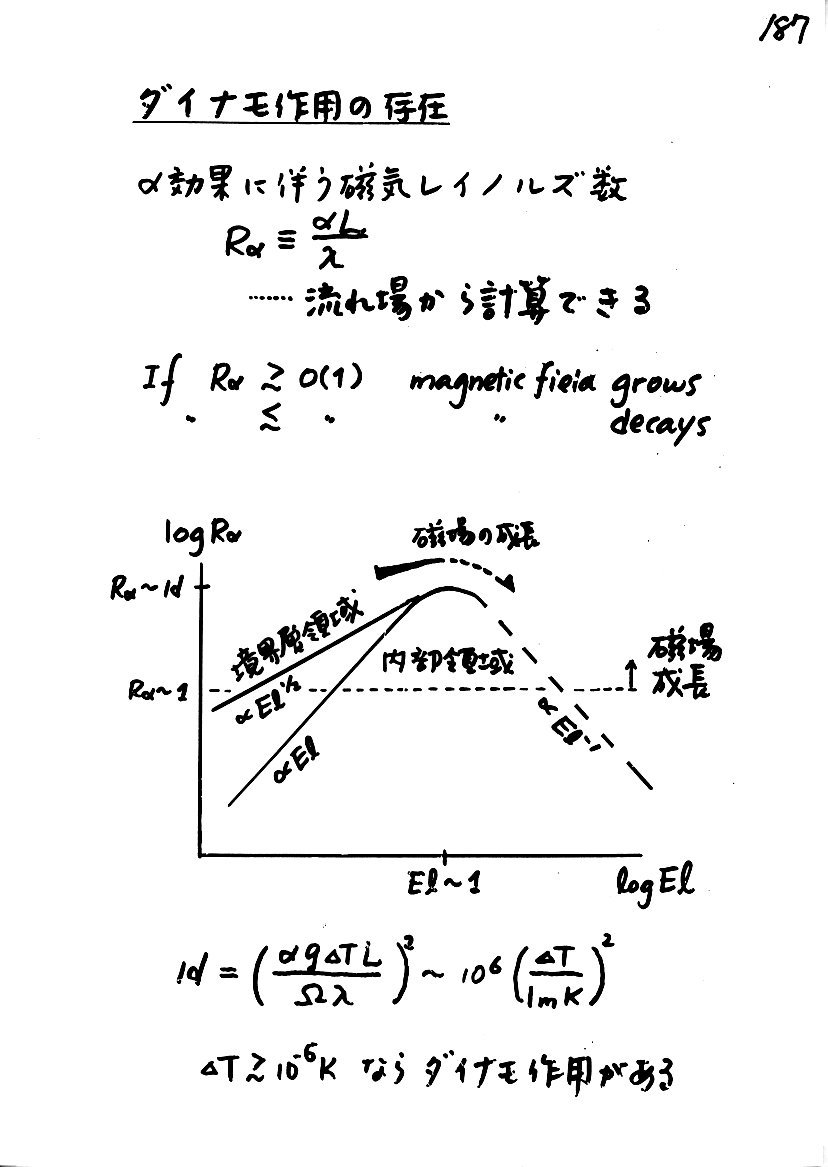 187
ダイナモ作用の存在
α効果に伴う磁気レイノルズ数
Rα ≡ αL/λ
…… 流れ場から計算できる
If Rα ≳ O(1) magnetic field grows
〃 ≲ 〃 〃 decays
log Rα
磁場の成長
Rα ~ Id
境界層領域
内部領域
磁場
成長
Rα ~ 1
∝ El^1/2
∝ El
∝ El^-1
El ~ 1
log El
Id = (αgΔTL/Ωλ)^2 ~ 10^6 (ΔT/1mK)^2
ΔT ≳ 10^-6 K ならダイナモ作用がある